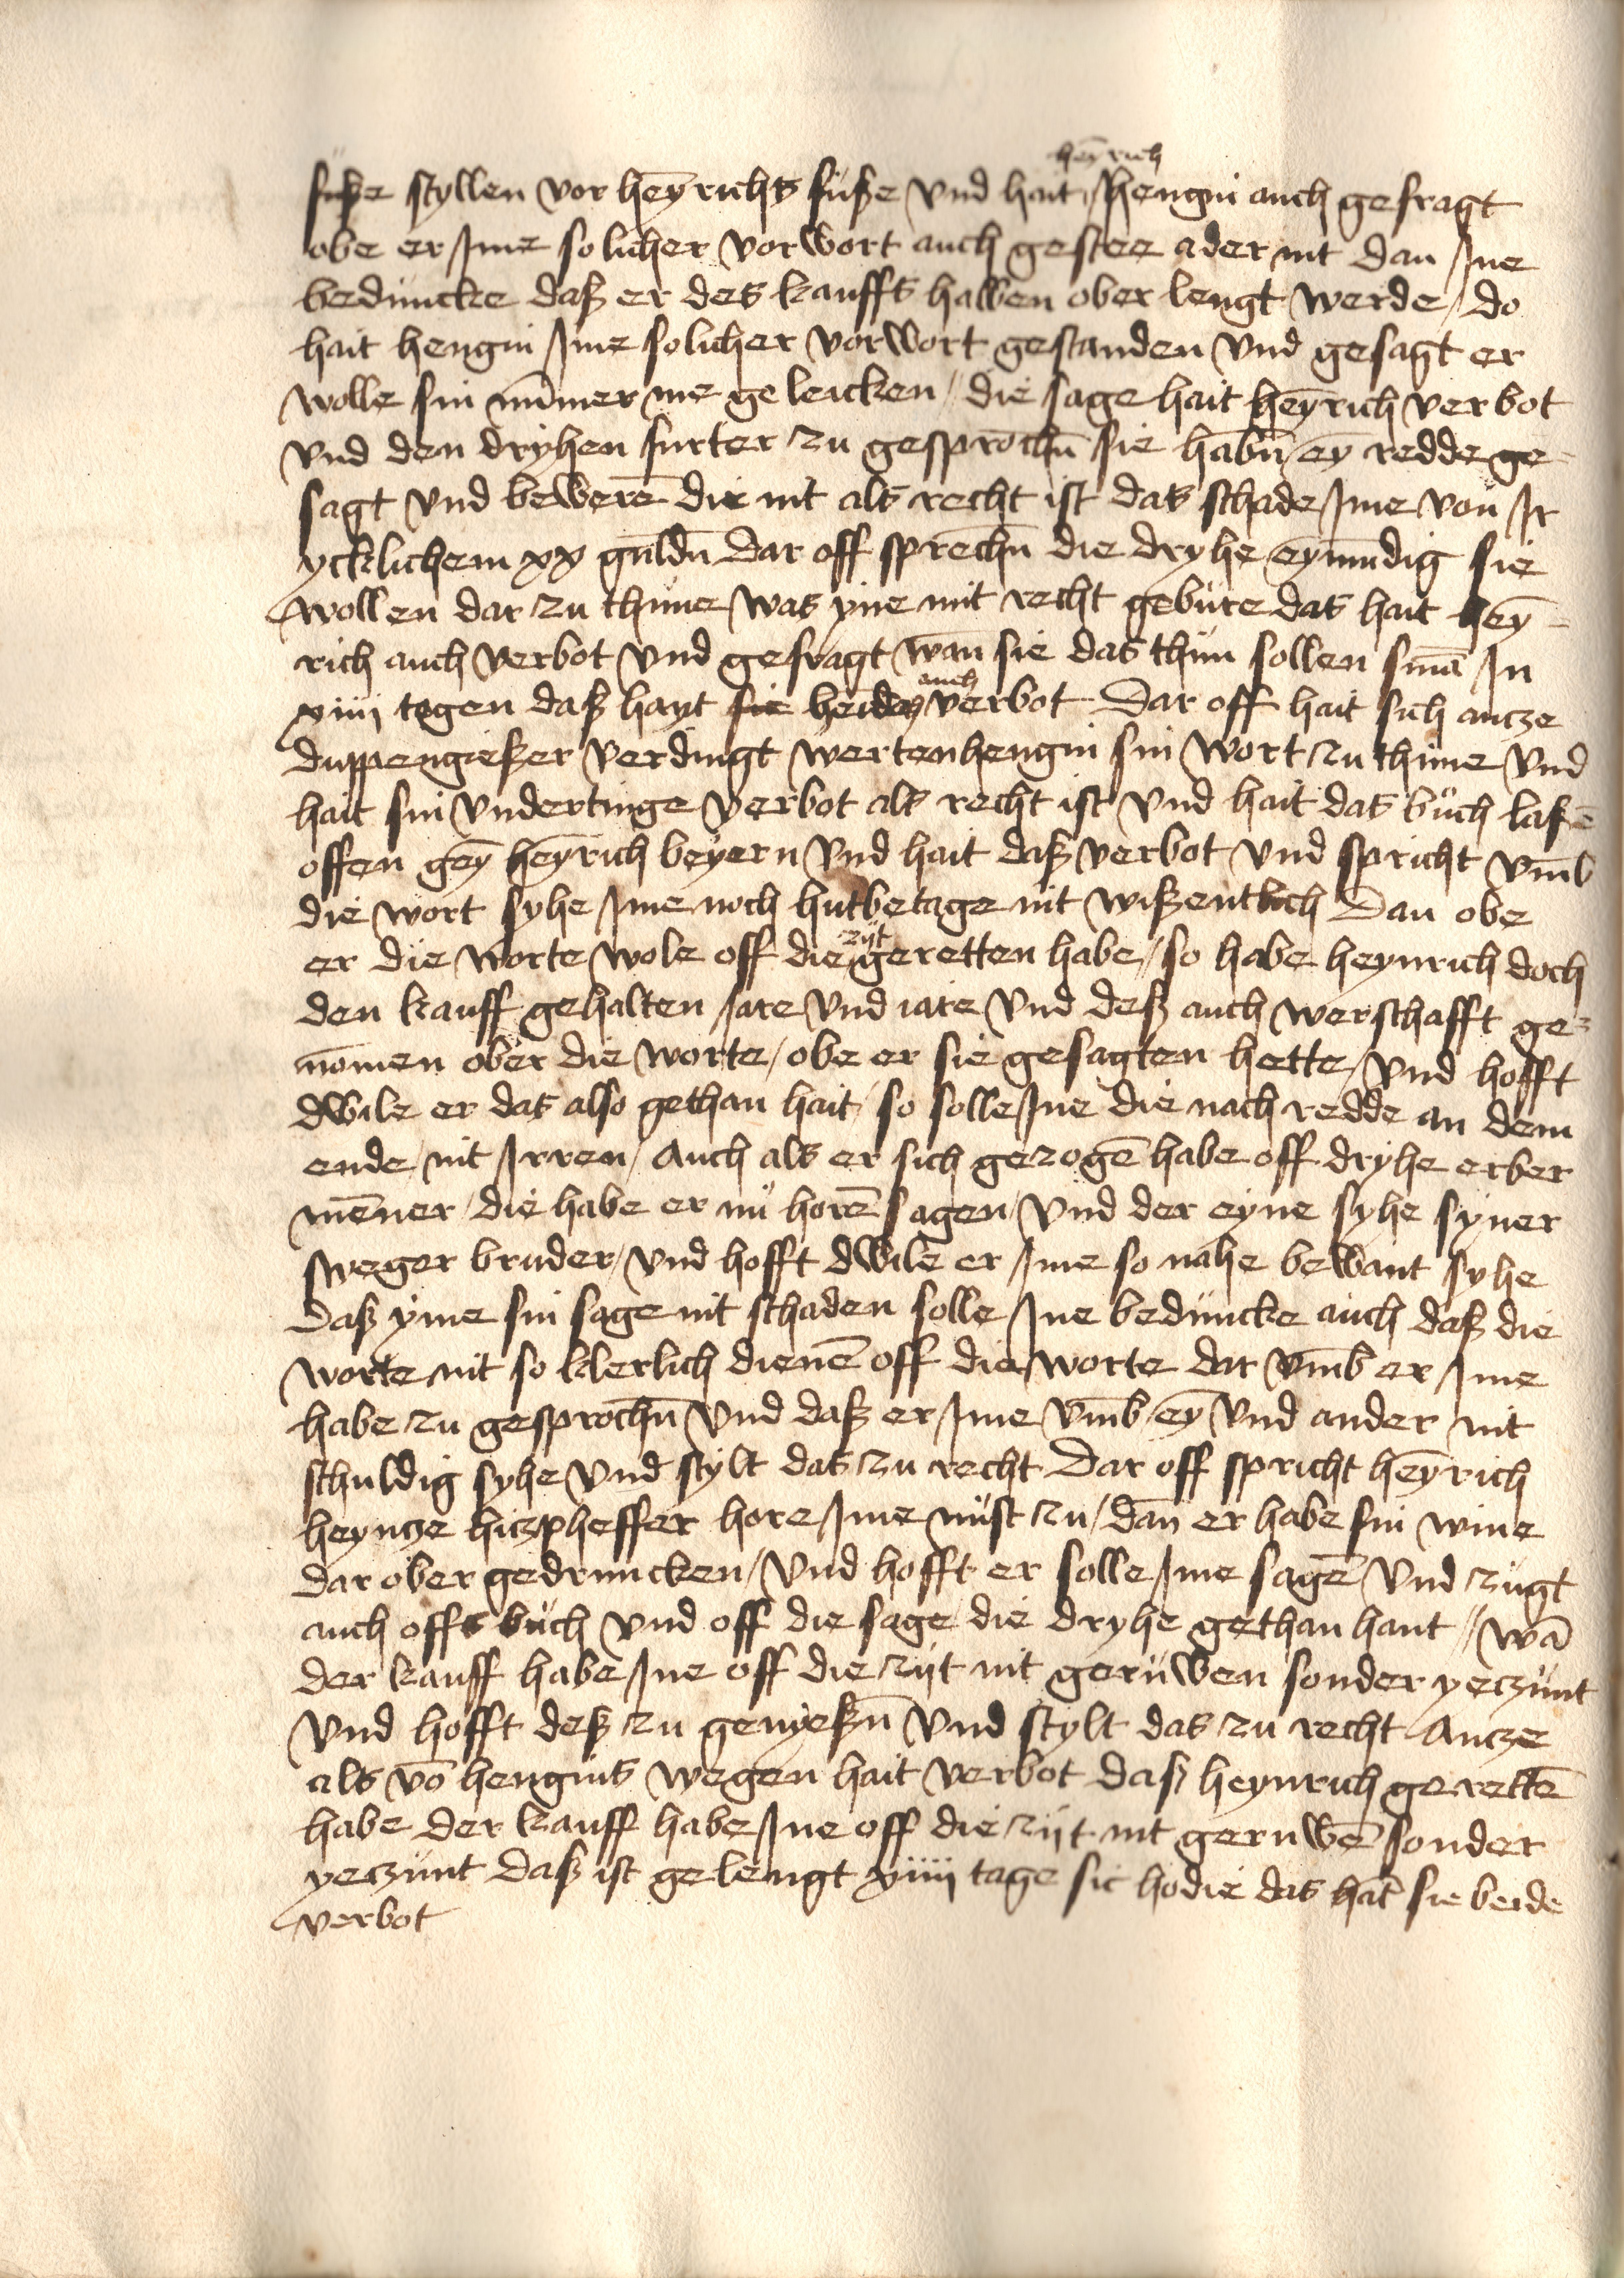 heȳrich
fuße styllen vor heȳrichs füße vnd hait hengin auch gefragt
obe er Ime solicher vorwort auch gestee ader nit dan Ine
beduncke daß er des kauffs halben ober lengt werde / do
hait hengin Ime solicher vorwort gestanden vnd gesagt er
wolle sin nūmer me geleicken / die sage hait heȳrich verbot
vnd den dryhen furter zu gesprochn̄ sie habn̄ / eȳ redde ge=
sagt vnd bewerē die nit als recht ist das schade Ime von Ir
ycklichem xx guldn̄ Dar off sprechn̄ die dryhe eȳmudig sie
wollen dar zu thune was yne mit recht gebure das hait heȳ=
rich auch verbot vnd gefragt wan sie das thun sollen sn̄iā In
xiiii tagen daß hayt sie heidez auch verbot Dar off hait sich antze
duppengießer verdingt wertenhengin sin wort zu thune vnd
hait sin vndertinge verbot als recht ist vnd hait das buch laßē
offen geȳ heȳrich beyern vnd hait daß verbot vnd spricht vm̄b
die wort syhe Ime noch hutbetage nit wißentlich Dan obe
er die worte wole off die zijt geretten habe / so habe heynrich doch
den kauff gehalten Jare vnd iare vnd deß auch werschafft ge=
nom̄en ober die worte / obe er sie gesagten hette / vnd hofft
dwile er das also gethan hait / so solle Ine die nach redde an dem
ende nit Irren / Auch als er sich gezogē habe off dryhe erber
mēner / die habe er nū horē sagen / vnd der eyne syhe syner
sweger bruder / vnd hofft dwile er Ime so nahe bewant syhe
Daß yme sin sage nit schaden solle Ine beduncke auch daß die
worte nit so klerlich dienē off die worte dar vm̄b er Ime
habe zu gesprochn̄ vnd daß er Ime vm̄b / eȳ vnd ander nit
schuldig syhe vnd stylt das zu recht Dar off spricht heȳrich
heyntze hitzpheffer hore Ime nüst zu / dan er habe sin wine
dar ober gedruncken / vnd hofft er solle Ime sagē vnd zugt
auch offs buch vnd off die sage die dryhe gethan hant // wā
der kauff habe Ine off die zijt nit geruwen sonder yeczunt
vnd hofft deß zu genyeßn̄ vnd stylt das zu recht Antze
als vō hengins wegen hait verbot daß heynrich gerettē
habe der kauff habe Ine off die zijt nit geruwē sonder
yeczunt Daß ist gelengt xiiii tage sic hodie das hat̄ sie beide
verbot